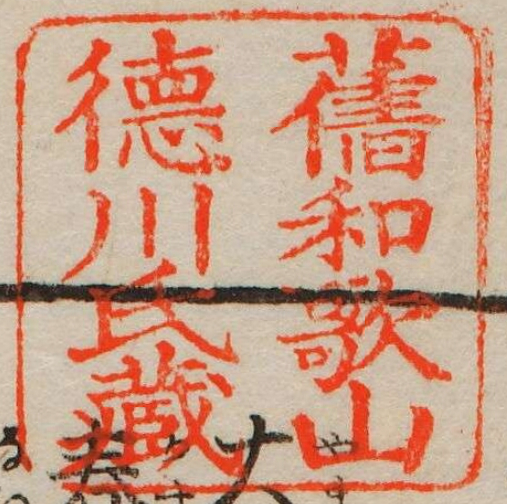 舊和歌山
德川氏藏